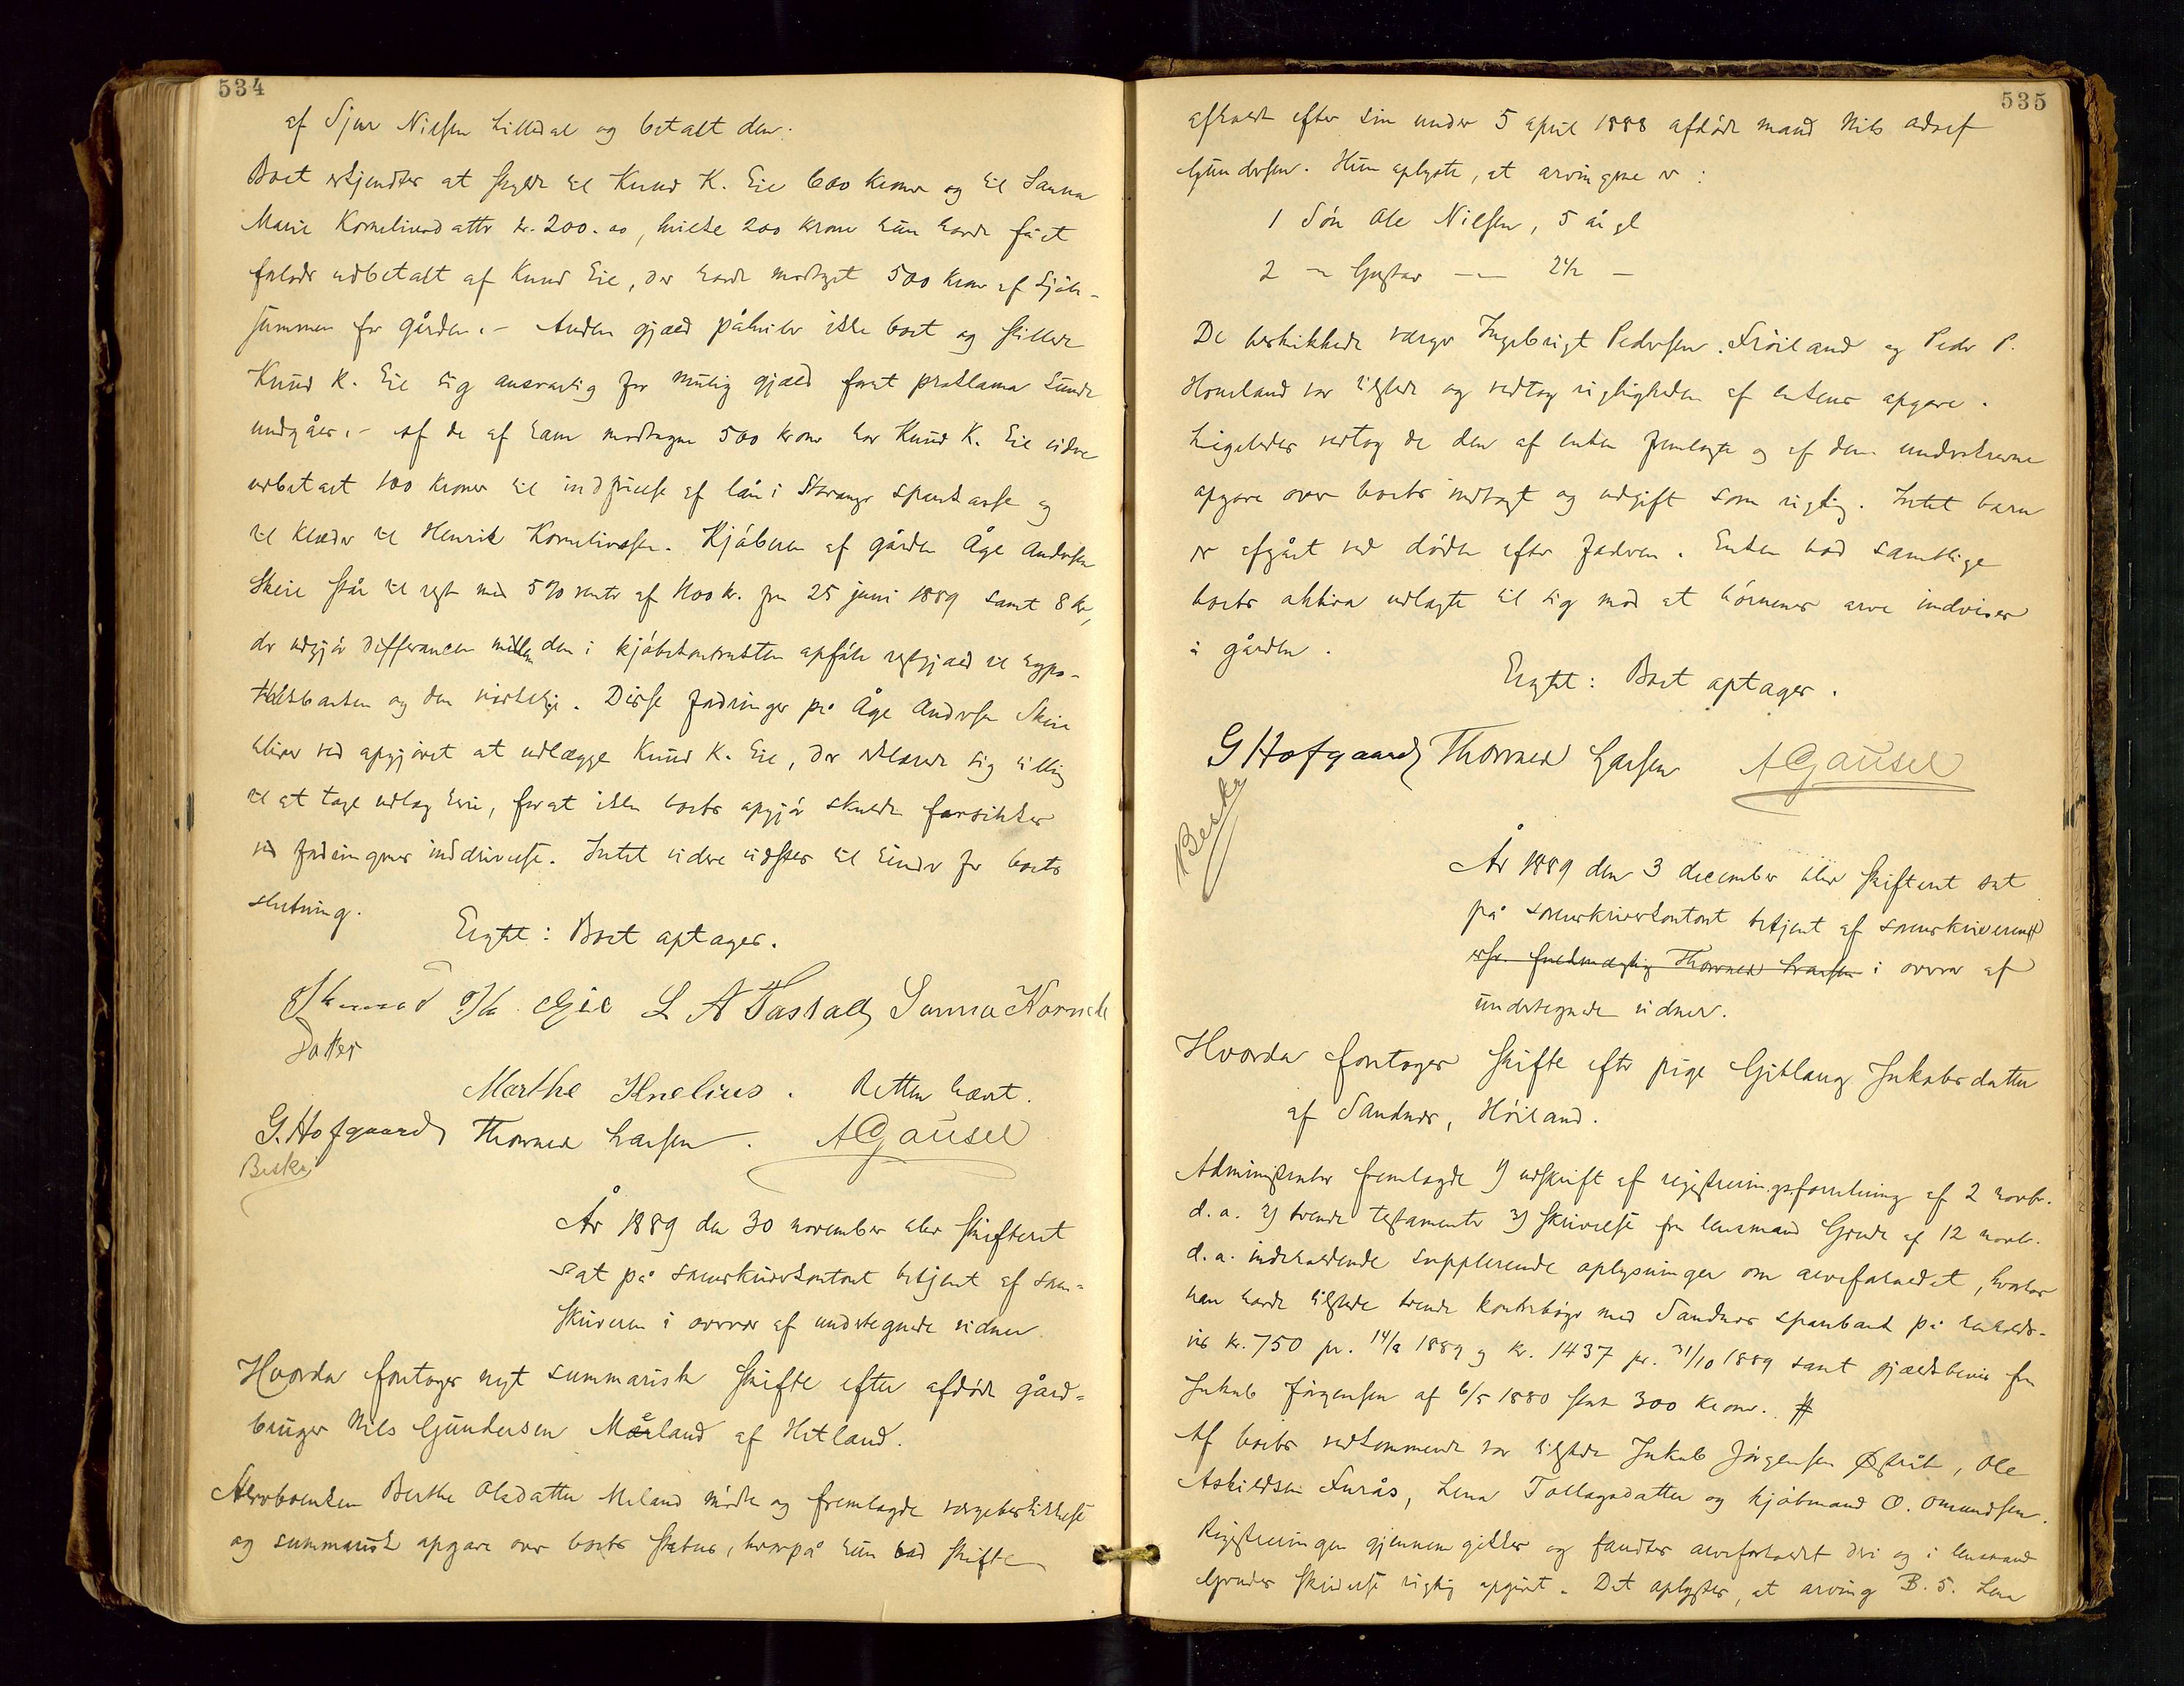 534
af Sjur Nielsen Lilledal og betalt den.
Boet erkjendtes at skylde til Knud K. Eie 600 kroner og til Sanna
Marie Korneliusdatter kr. 200.00, hvilke 200 kroner hun havde fået
forlods udbetalt af Knud Eie, der havde modtaget 500 kroner af kjøbe-
summen for gården. – Anden gjæld påhviler ikke boet og stillede
Knud K. Eie sig ansvarlig for mulig gjæld forat proklama kunde
undgåes. – Af de af ham modtagne 500 kroner har Knud K. Eie videre
udbetalt 100 kroner til indfrielse af lån i Stavanger sparekasse og
til klæder til Henrik Korneliussen. Kjøberen af gården Åge Andersen
Skeie står til rest med 5% renter af 1100 kr. fra 25 juni 1889 samt 8 kr,
der udgjør differancen mellem den i kjøbekontrakten opførte restgjæld til hypo-
thekbanken og den virkelige. Disse fordringer på Åge Andersen Skeie
bliver ved opgjøret at udlægge Knud K. Eie, der erklærede sig villig
til at tage udlæg heri, forat ikke boets opgjør skulde forsinkes
ved fordringernes inddrivelse. Intet videre vidstes til hinder for boets
slutning.
Eragtet: Boet optages.
Knud K. Eie L A Tastad Sanna Kornele
Datter
Marthe Knelius. Retten hævet.
G. Hofgaard Thorvald Larsen. A Gausel
Beskr
År 1889 den 30 november blev skifteret
sat på sorenskriverkontoret betjent af soren-
skriveren i overvær af undertegnede vidner
Hvorda foretoges nyt summarisk skifte efter afdøde gård-
bruger Nils Gundersen Meland af Hetland.
Arvebenken Berthe Olsdatter Meland mødte og fremlagde værgebeskikkelse
og summarisk opgave over boets status, hvorpå hun bad skifte
535
afholdt efter sin under 5 april 1888 afdøde mand Nils Adolf
Gundersen. Hun oplyste, at arvingerne er:
1 Søn Ole Nielsen, 5 år gl
2 – Gustav –"– 2½ –
De beskikkede værger Ingebrigt Pedersen Frøiland og Peder P.
Homeland var tilstede og vedtog rigtigheden af enkens opgave.
Ligeledes vedtog de den af enken fremlagte og af dem underskrevne
opgave over boets indtægt og udgift som rigtig. Intet barn
er afgået ved døden efter faderen. Enken bad samtlige
boets aktiva udlagte til sig mod at børnenes arv indvises
i gården.
Eragtet: Boet optages.
G Hofgaard Thorvald Larsen A Gausel
Beskr
År 1889 den 3 december blev skifteret sat
på sorenskriverkontoret betjent af sorenskriveren
ved fuldmægtig Thorvald Larsen i overvær af
undertegnede vidner.
Hvorda foretoges skifte efter pige Gitlaug Jakobsdatter
af Sandnes, Høiland.
Administrator fremlagde 1) udskrift af registreringsforretning af 2 novbr.
d.a. 2) tvende testamenter 3) skrivelse fra lensmand Grude af 12 novbr.
d.a. indeholdende supplerende oplysninger om arveforholdet, hvorhos
han havde tilstede tvende kontrabøger med Sandnes sparebank på henholds-
vis kr. 750 pr. 14/8 1889 og kr. 1437 pr. 31/10 1889 samt gjældsbevis fra
Jakob Jørgensen af 6/5 1880 stort 300 kroner. #
Af boets vedkommende var tilstede Jakob Jørgensen Østråt, Ole
Askildsen Furås, Lena Tollagsdatter og kjøbmand O. Omundsen.
Registreringen gjennemgikkes og fandtes arveforholdet deri og i lensmand
Grudes skrivelse rigtig opgivet. Det oplystes, at arving B. 5. Lena